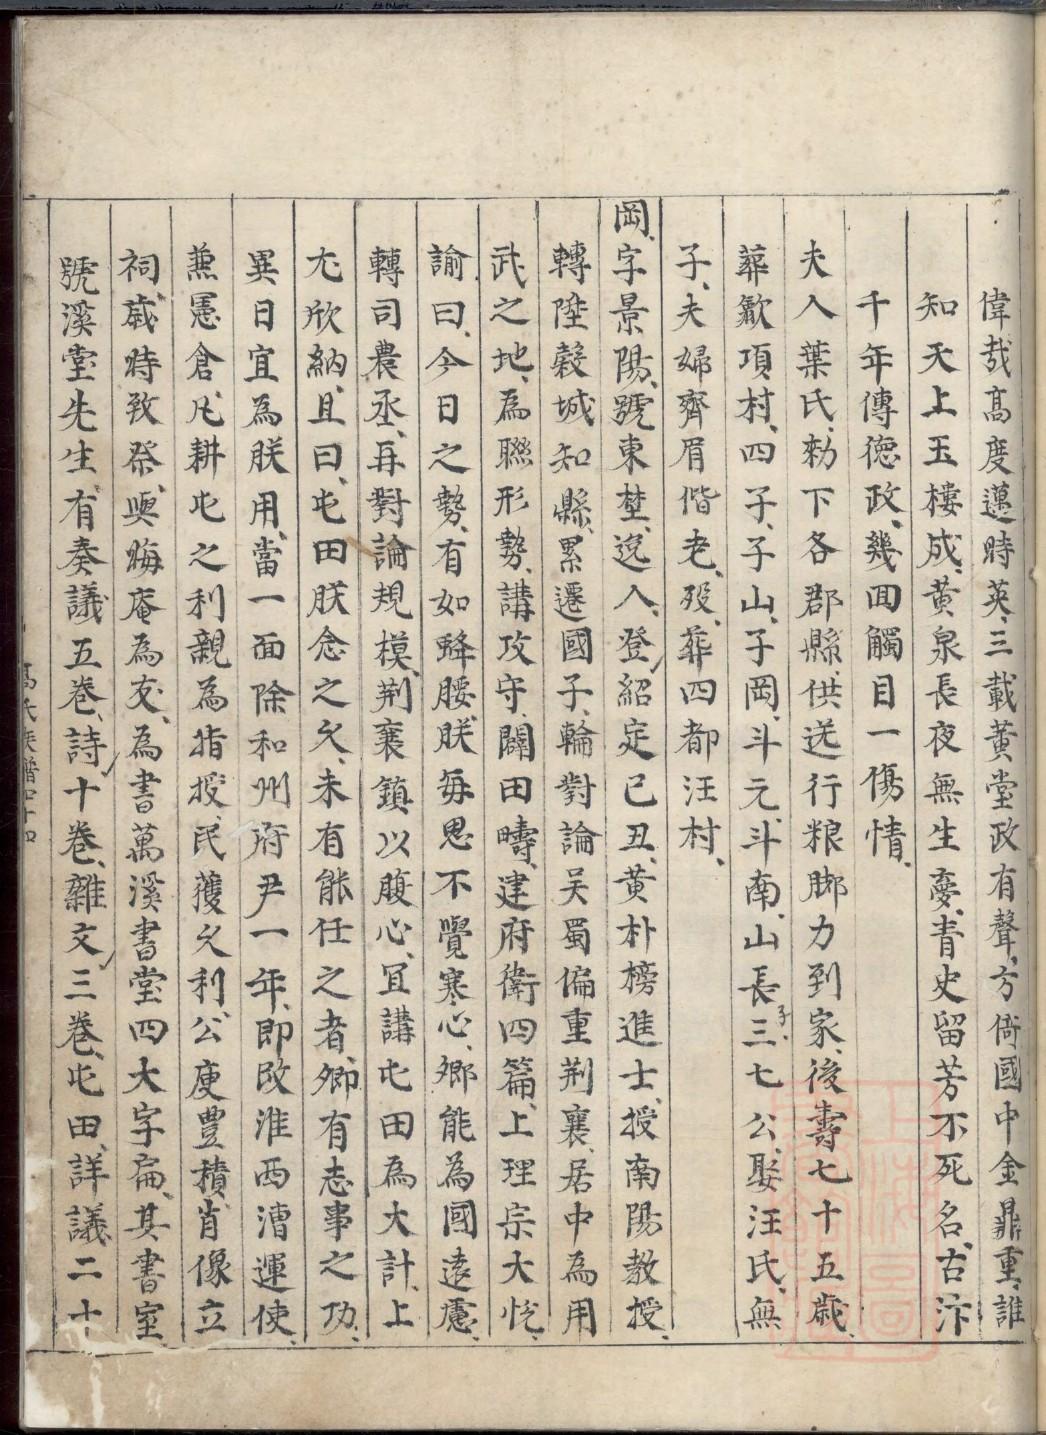 偉哉髙度邁時英、三載黄堂政有聲、方倚國中金鼎重、誰
知天上玉樓成、黄泉長夜無生夣、青史留芳不死名、古汴
千年傳德政、幾囬觸目一傷情、
夫人葉氏、勑下各郡縣、供送行粮脚力到家、後壽七十五歲、
葬歙項村、四子、子山、子岡、斗元、斗南、山長子、三七公、娶汪氏、無
子、夫婦齊眉偕老、殁、葬四都汪村、
岡、字景陽、號東埜、逸人、登紹定己丑、黄朴榜進士、授南陽教授、
轉陞穀城知縣、累遷國子、輪對論吴蜀偏重荆襄、居中為用
武之地、為聯形勢、講攻守、闢田疇、建府衛四篇、上理宗大悦、
諭曰、今日之勢、有如　腰、朕每思不覺寒心、卿能為國遠慮、
轉司農丞、再對論規模、荆襄鎮以腹心、冝講屯田為大計、上
尤欣納、且曰、屯田朕念之久、未有能任之者、卿有志事之功、
異日宜為朕用、當一面除和州府尹一年、即改淮西漕運使、
兼憲倉、凡耕屯之利親為指授、民獲久利公庾豊積、肖像立
祠、歲時致祭、與晦庵為友、為書萬溪書堂四大字扁、其書室
號溪堂先生、有奏議五巻、詩十巻、雜文三巻、屯田詳議二十